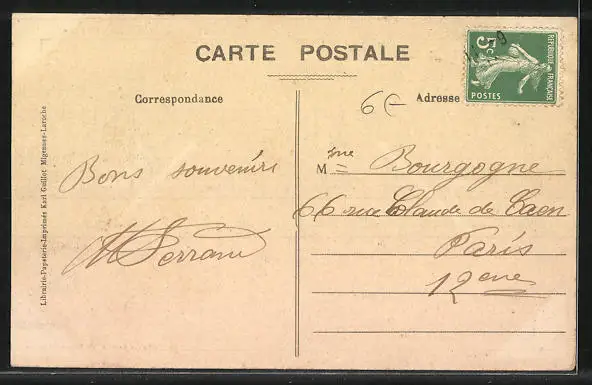 CARTE POSTALE
Correspondance
Bons souvenirs
Librairie-Papeterie-Imprimés Karl Guillot Migennes-Laroche
6€
Adresse
5c
REPUBLIQUE FRANÇAISE
POSTES
Mme Bourgogne
66 rue Claude de Caen
Paris
12ème